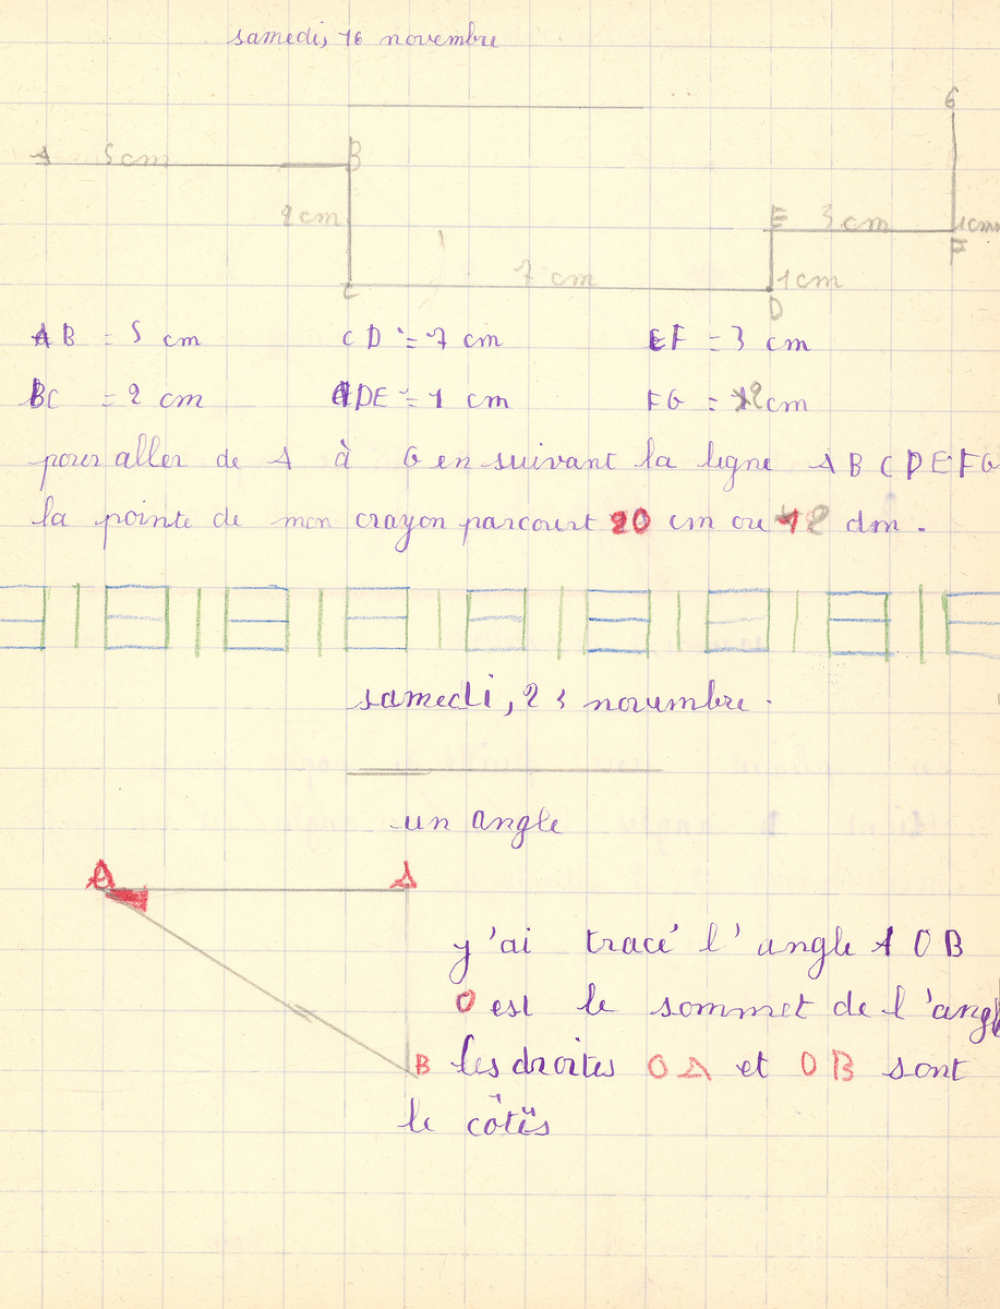 samedi, 16 novembre
G
A 5 cm B
2 cm E 3 cm 1 cm
F
7 cm 1 cm
C D
AB = 5 cm CD = 7 cm EF = 3 cm
BC = 2 cm DE = 1 cm FG = 2 cm
pour aller de A à G en suivant la ligne A B C D E F G
la pointe de mon crayon parcourt 20 cm ou 2 dm.
samedi, 23 novembre.
un angle
O A
y'ai tracé l'angle A O B
O est le sommet de l'angl
B les droites O A et O B sont
le côtés